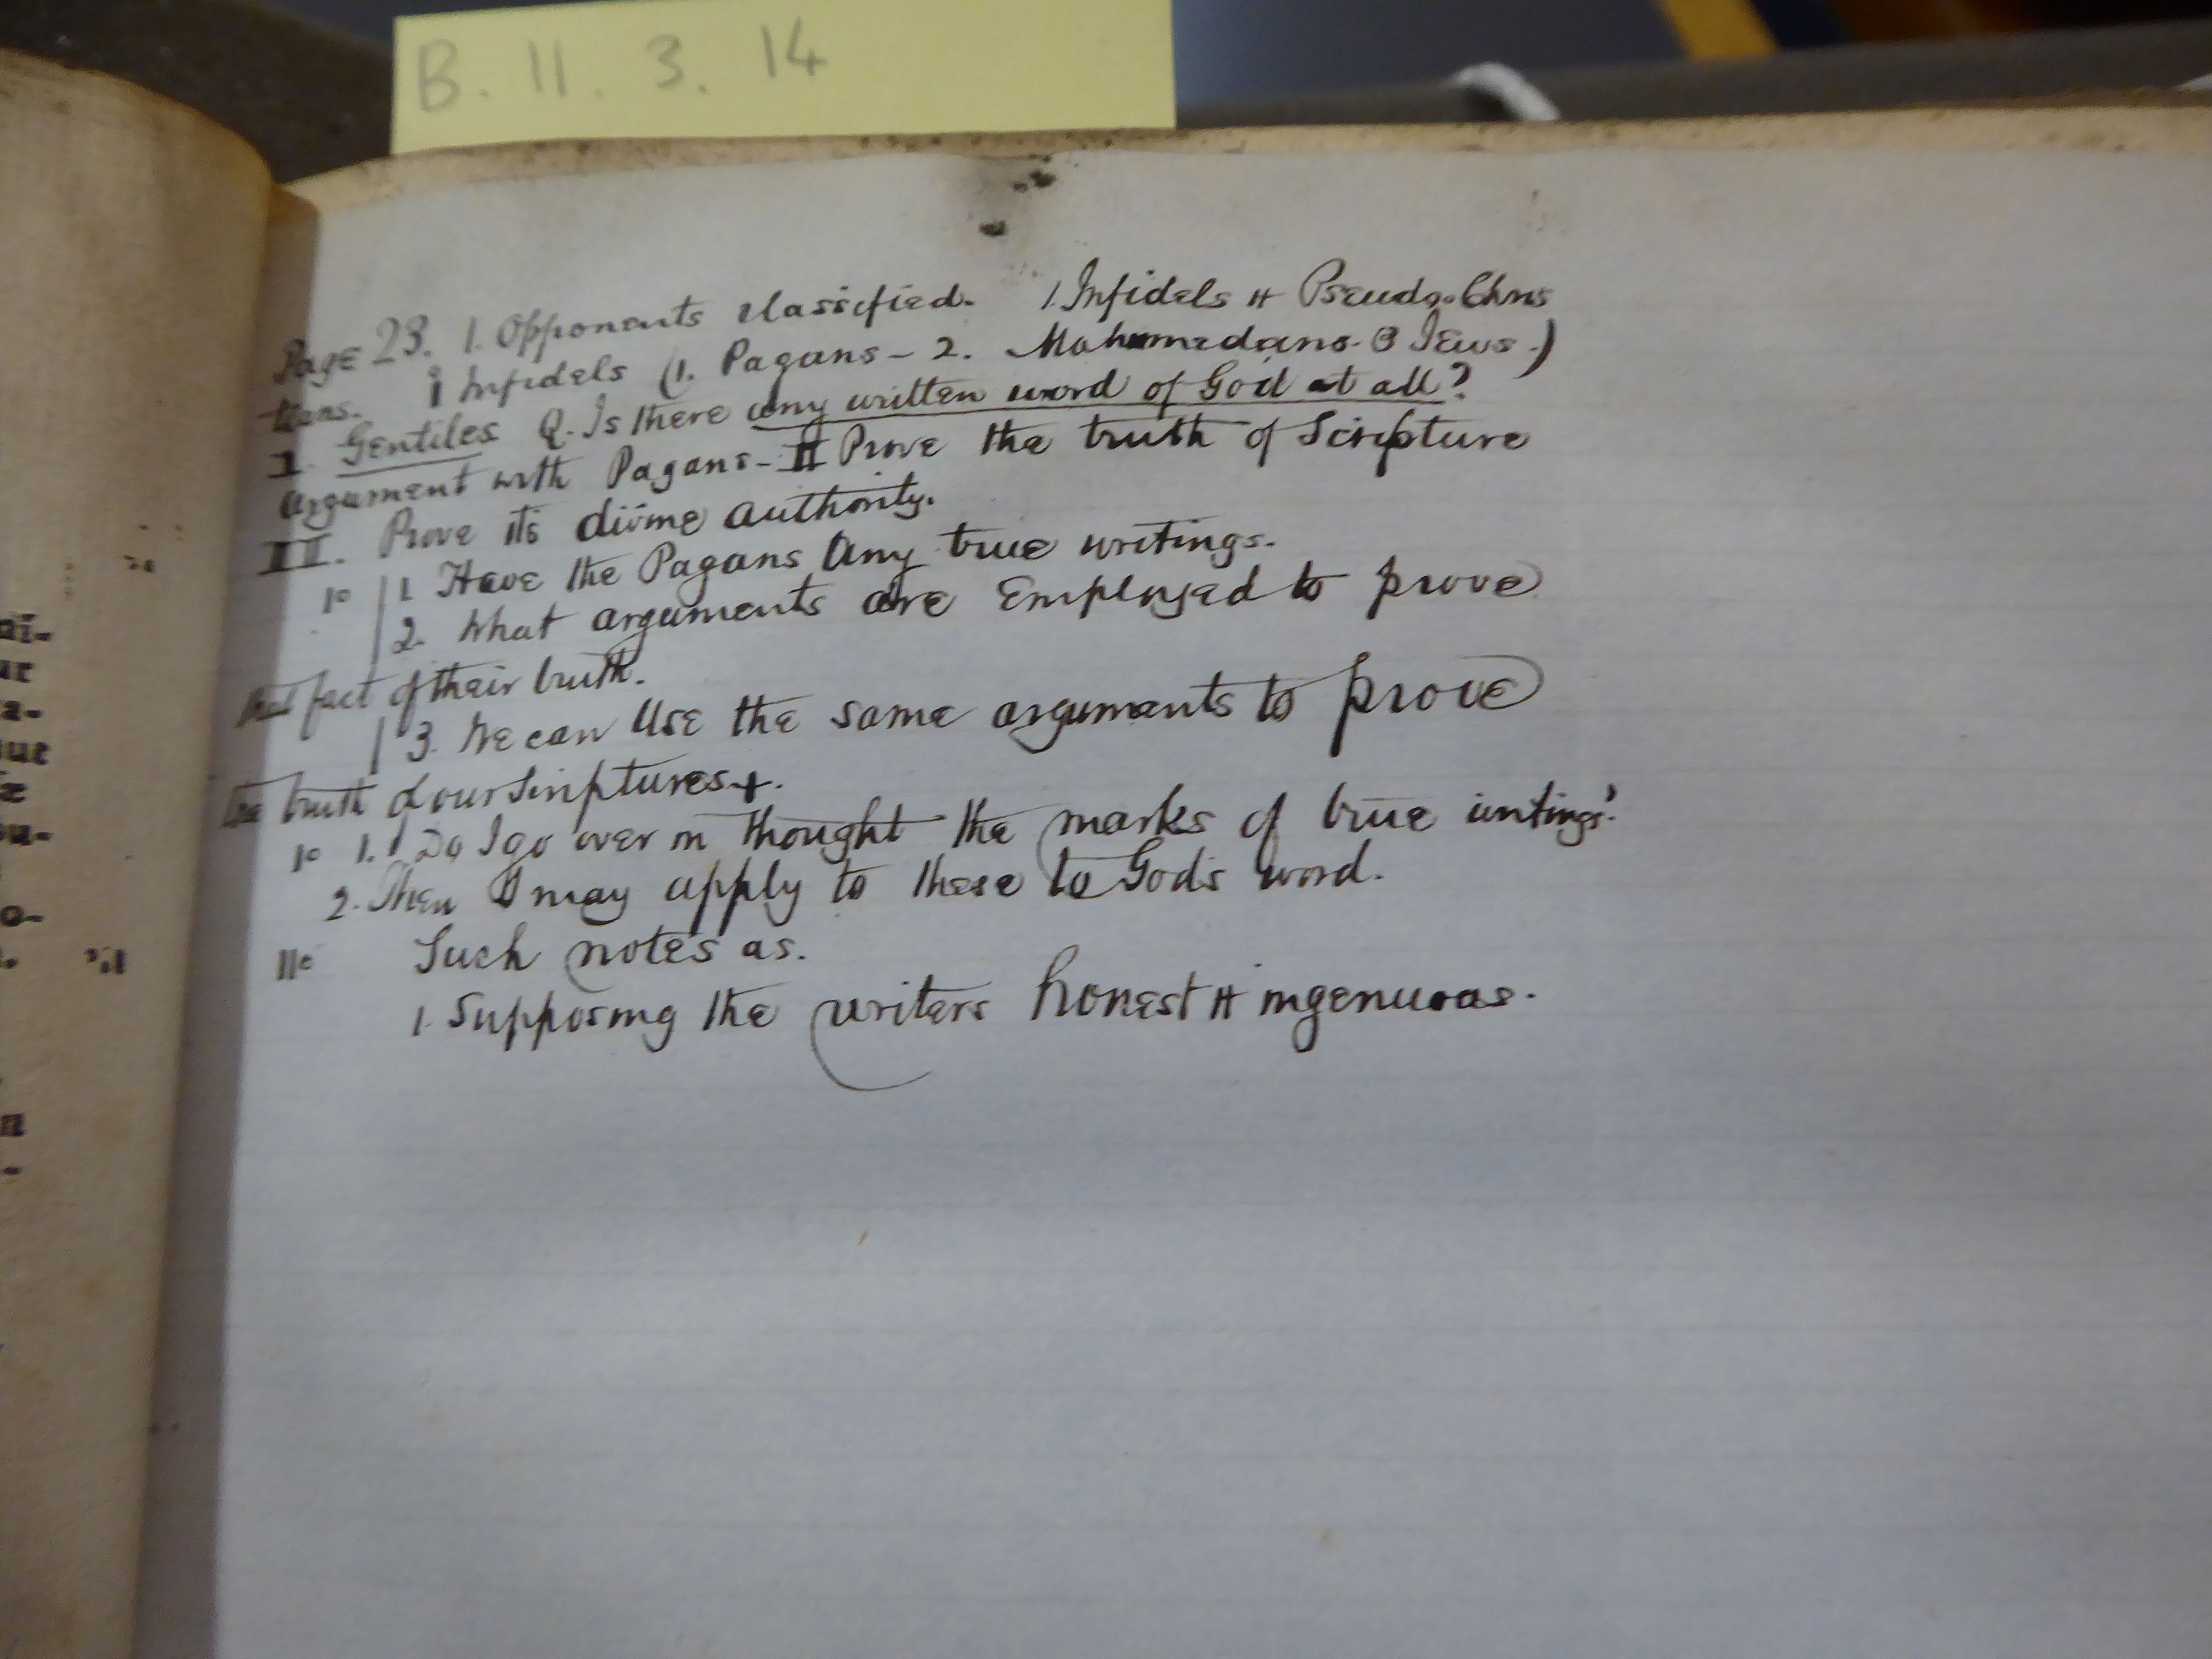 B. 11. 3. 14
Page 23. 1. Opponents classified. 1. Infidels & Pseudo-Chris
-tians. i Infidels (1. Pagans - 2. Mahumedans. 3 Jews.)
I. Gentiles Q. Is there any written word of God at all?
Argument with Pagans - II Prove the truth of Scripture
II. Prove its divine authority.
1º 1. Have the Pagans any true writings.
2. What arguments are Employed to prove
fact of their truth.
3. We can Use the same arguments to prove
the truth of our Scriptures +.
1º 1. Do I go over in thought the marks of true writings?
2. Then I may apply to these to God's word.
11º Such notes as.
1. Supposing the writers honest & ingenuous.
ni-
ur
a-
que
æ
ou-
o-
n